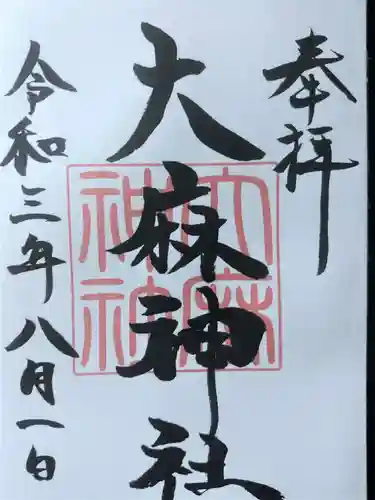 奉拝
大麻神社
令和三年八月一日
大麻
神社